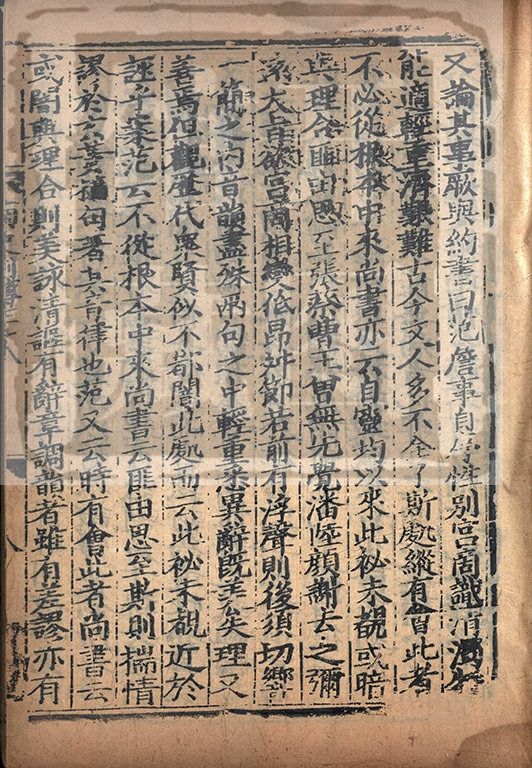 又論其事厥與約書曰范詹事自序性別宮商識清濁特
能適輕重濟艱難古今文人多不全了斯處縱有會此者
不必從根本中來尚書亦云自靈均以來此祕未覩或暗
與理合匪由思至張蔡曹王曾無先覺潘陸顏謝去之彌
遠大旨欲宮商相變低昂舛節若前有浮聲則後須切響
一簡之內音韻盡殊兩句之中輕重悉異辭既美矣理又
善焉但觀歷代衆賢似不都闇此處而云此祕未覩近於
誣乎案范云不從根本中來尚書云匪由思至斯則揣情
謬於玄黃擿句著其音律也范又云時有會此者尚書云
或闇與理合則美詠清謳有辭章調韻者雖有差謬亦有